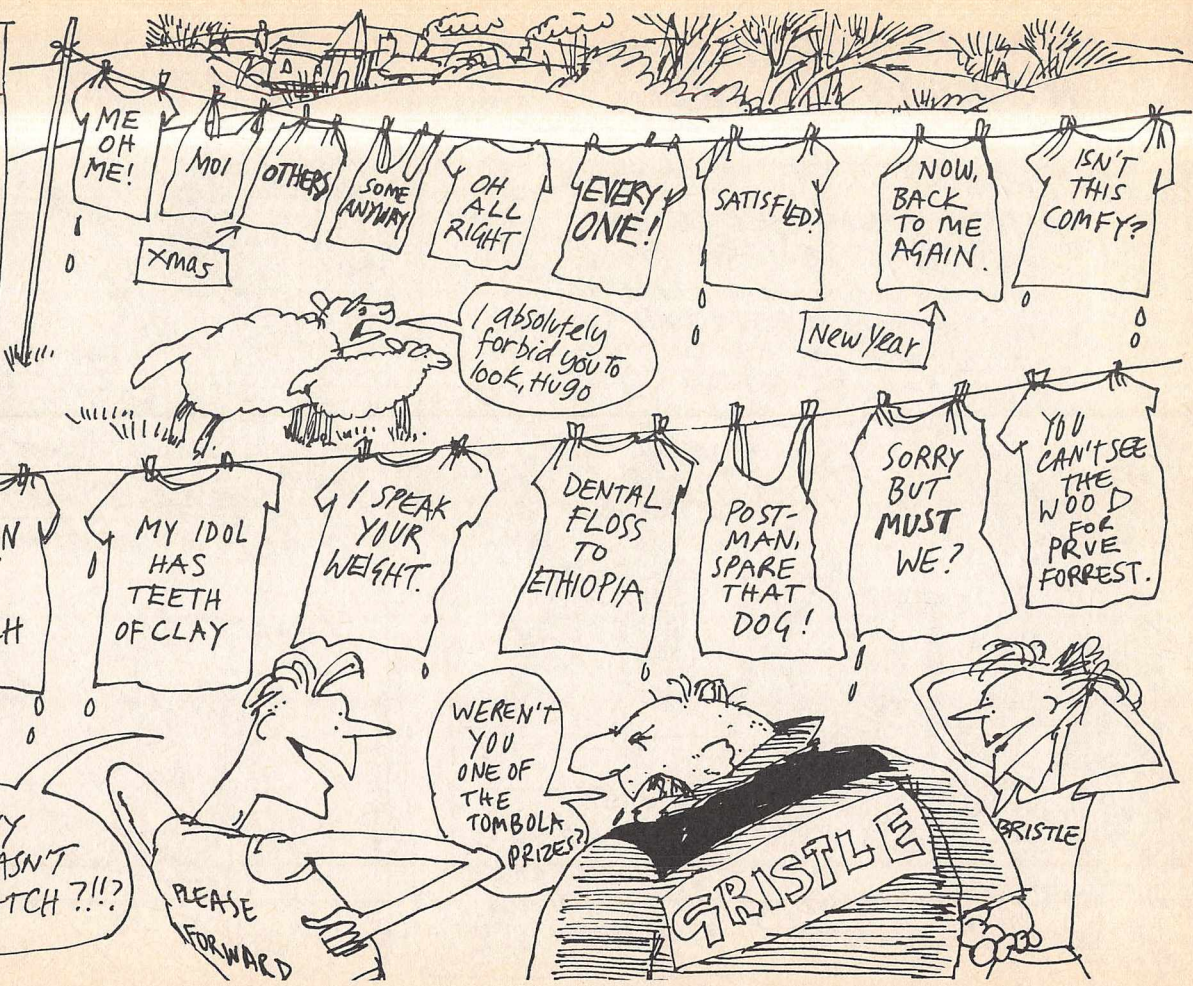 ME
OH
ME!
MOI
OTHERS
SOME
ANYWAY
OH
ALL
RIGHT
EVERY
ONE!
SATISFIED?
NOW,
BACK
TO ME
AGAIN.
ISN'T
THIS
COMFY?
Xmas
New Year
I absolutely
forbid you to
look, Hugo
N
H
MY IDOL
HAS
TEETH
OF CLAY
I SPEAK
YOUR
WEIGHT.
DENTAL
FLOSS
TO
ETHIOPIA
POST-
MAN,
SPARE
THAT
DOG!
SORRY
BUT
MUST
WE?
YOU
CAN'T SEE
THE
WOOD
FOR
PRVE
FORREST.
Y
ASN'T
TCH?!!?
PLEASE
FORWARD
WEREN'T
YOU
ONE OF
THE
TOMBOLA
PRIZES?
GRISTLE
BRISTLE